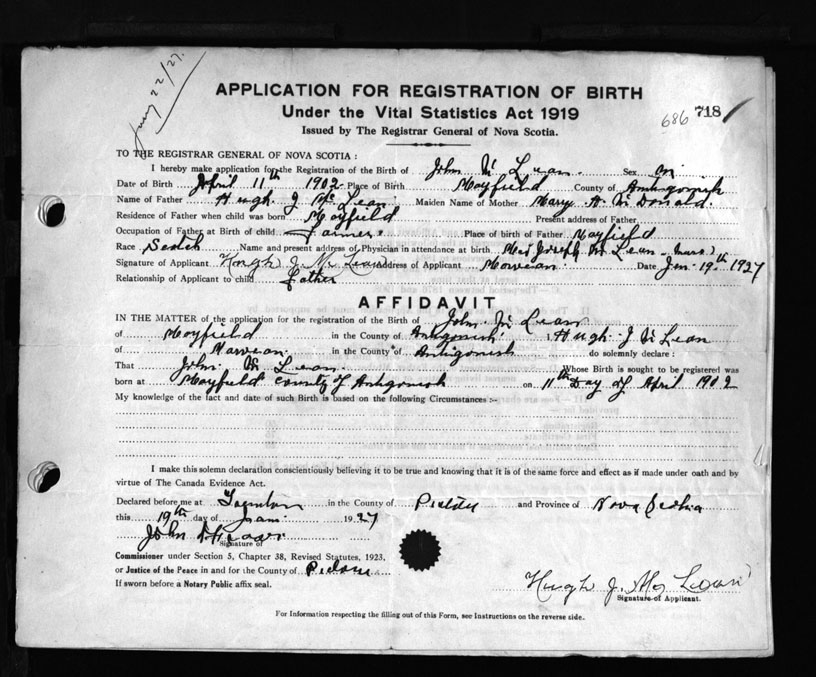 Jany 22/27.
APPLICATION FOR REGISTRATION OF BIRTH
Under the Vital Statistics Act 1919
686 718
Issued by The Registrar General of Nova Scotia.
TO THE REGISTRAR GENERAL OF NOVA SCOTIA :
I hereby make application for the Registration of the Birth of John Mc Lean Sex M
Date of Birth April 11th 1902 Place of Birth Mayfield County of Antigonish
Name of Father Hugh J Mc Lean Maiden Name of Mother Mary A. Mc Donald.
Residence of Father when child was born Mayfield Present address of Father
Occupation of Father at Birth of child Farmer Place of birth of Father Mayfield
Race Scotch Name and present address of Physician in attendance at birth Mrs Joseph Mc Lean
Signature of Applicant Hugh J. Mc Lean Address of Applicant Date Jan 19th 1927
Relationship of Applicant to child Father
AFFIDAVIT
IN THE MATTER of the application for the registration of the Birth of John Mc Lean
of Mayfield in the County of Antigonish I, Hugh J Mc Lean
of in the County of Antigonish do solemnly declare :
That John Mc Lean Whose Birth is sought to be registered was
born at Mayfield County of Antigonish on 11th Day of April 1902
My knowledge of the fact and date of such Birth is based on the following Circumstances :–
I make this solemn declaration conscientiously believing it to be true and knowing that it is of the same force and effect as if made under oath and by
virtue of The Canada Evidence Act.
Declared before me at in the County of Pictou and Province of Nova Scotia
this 19th day of Jan 1927
John
Signature of
Commissioner under Section 5, Chapter 38, Revised Statutes, 1923,
or Justice of the Peace in and for the County of Pictou
If sworn before a Notary Public affix seal.
Hugh J. Mc Lean
Signature of Applicant.
For Information respecting the filling out of this Form, see Instructions on the reverse side.